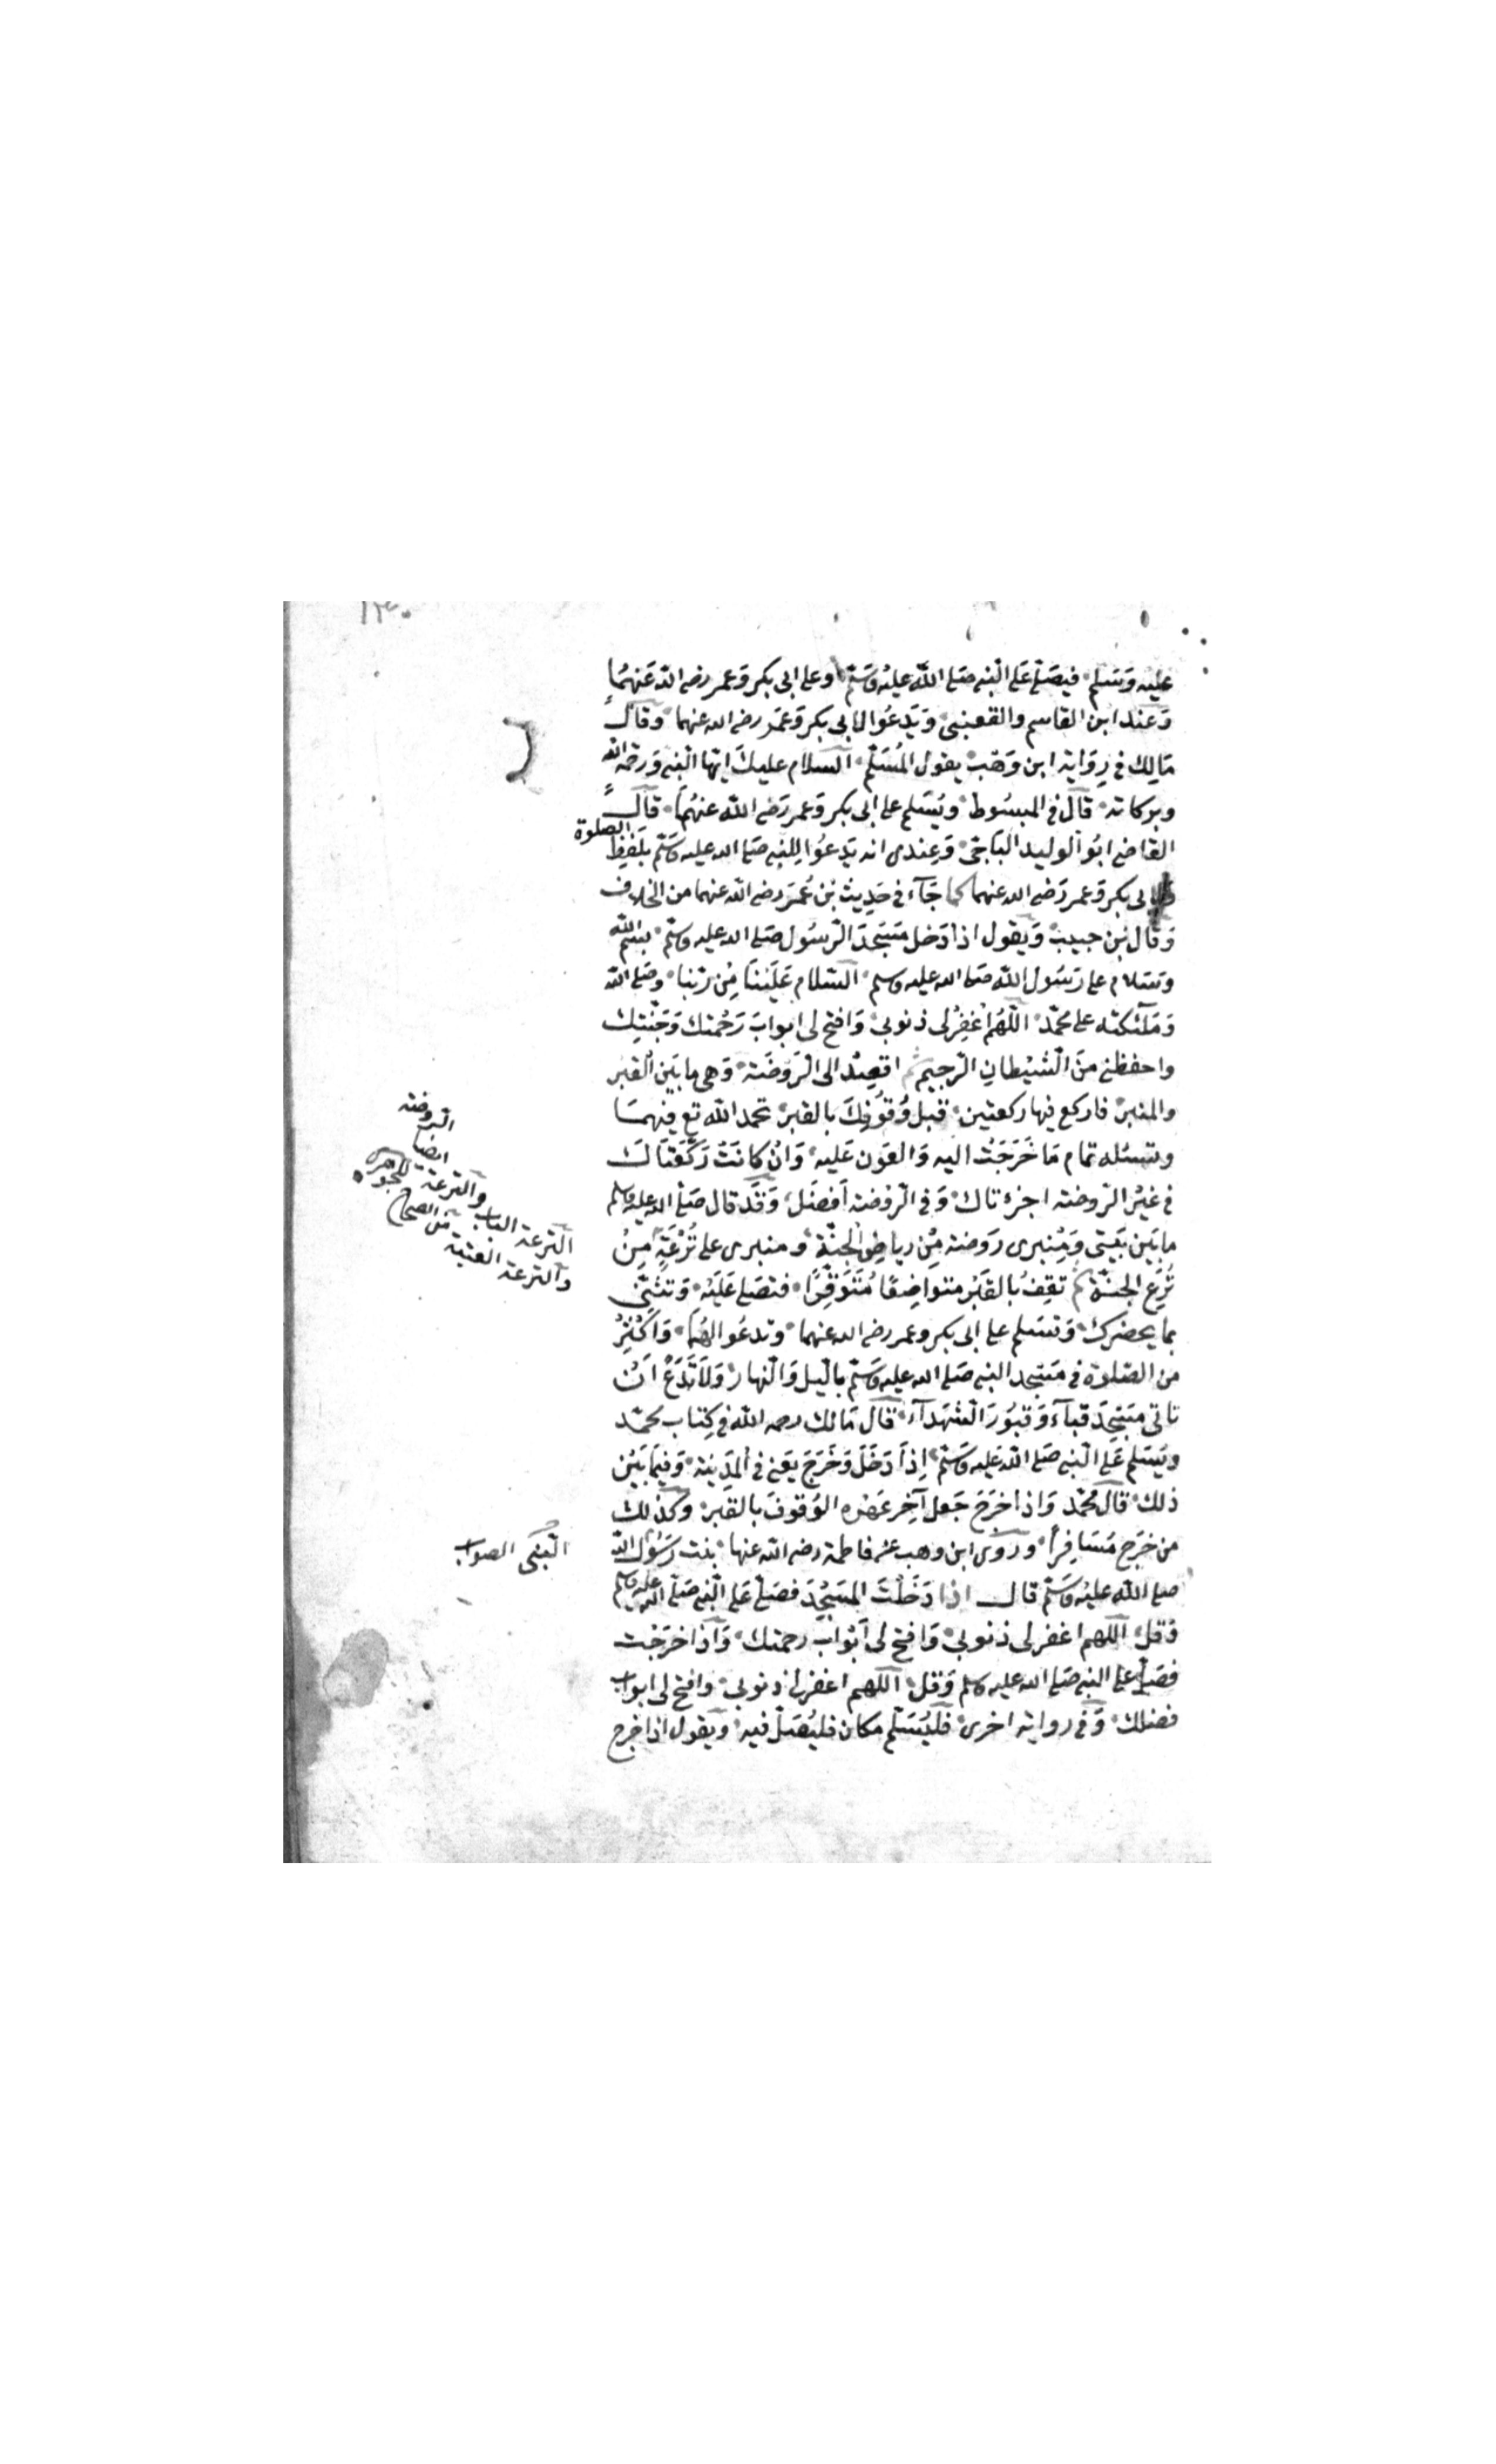 عليه وسلم فيصلى على النبى صلى الله عليه وسلم وعلى ابى بكر وعمر رضى الله عنهما
وعند ابن القاسم والقعنبى ويدعوا لابى بكر وعمر رضى الله عنهما وقال
مالك فى رواية ابن وهب يقول المسلم السلام عليك ايها النبى ورحمة الله
وبركاته قال فى المبسوط ويسلم على ابى بكر وعمر رضى الله عنهما قال
القاضى ابو الوليد الباجى وعندى انه يدعوا للنبى صلى الله عليه وسلم بلفظ الصلوة
ولابى بكر وعمر رضى الله عنهما كما جآء فى حديث بن عمر رضى الله عنهما من الخلاف
وقال بن حبيب ويقول اذا دخل مسجد الرسول صلى الله عليه وسلم بسم الله
وسلام على رسول الله صلى الله عليه وسلم السلام علينا من ربنا وصلى الله
وملآئكته على محمد اللهم اغفر لى ذنوبى وافتح لى ابواب رحمتك وجنتك
واحفظنى من الشيطان الرجيم ثم اقصد الى الروضة وهى ما بين القبر
والمنبر فاركع فيها ركعتين قبل وقوفك بالقبر تحمد الله تع فيهما
وتسئله تمام ما خرجت اليه والعون عليه وان كانت ركعتاك
فى غير الروضة اجزءتاك وفى الروضة افضل وقد قال صلى الله عليه وسلم
ما بين بيتى ومنبرى روضة من رياض الجنة ومنبرى على ترعة من
ترع الجنة ثم تقف بالقبر متواضعا متوقرا فتصلى عليه وتثنى
بما يحضرك وتسلم على ابى بكر وعمر رضى الله عنهما وتدعوا لهما واكثر
من الصلوة فى مسجد النبى صلى الله عليه وسلم بالليل والنهار ولا تدع ان
تاتى مسجد قبآء وقبور الشهدآء قال مالك رحمه الله فى كتاب محمد
ويسلم على النبى صلى الله عليه وسلم اذا دخل وخرج يعنى فى المدينة وفيما بين
ذلك قال محمد واذا خرج جعل آخر عهده الوقوف بالقبر وكذلك
من خرج مسافرا وروى ابن وهب عن فاطمة رضى الله عنها بنت رسول الله
صلى الله عليه وسلم قال اذا دخلت المسجد فصل على النبى صلى الله عليه وسلم
وقل اللهم اغفر لى ذنوبى وافتح لى ابواب رحمتك واذا خرجت
فصل على النبى صلى الله عليه وسلم وقل اللهم اغفر لى ذنوبى وافتح لى ابواب
فضلك وفى رواية اخرى فليسلم مكان فليصل فيه ويقول اذا خرج
الروضة
ايضا
والترعة
الترعة الباب من الصحاح
والترعة العتبة
الصواب